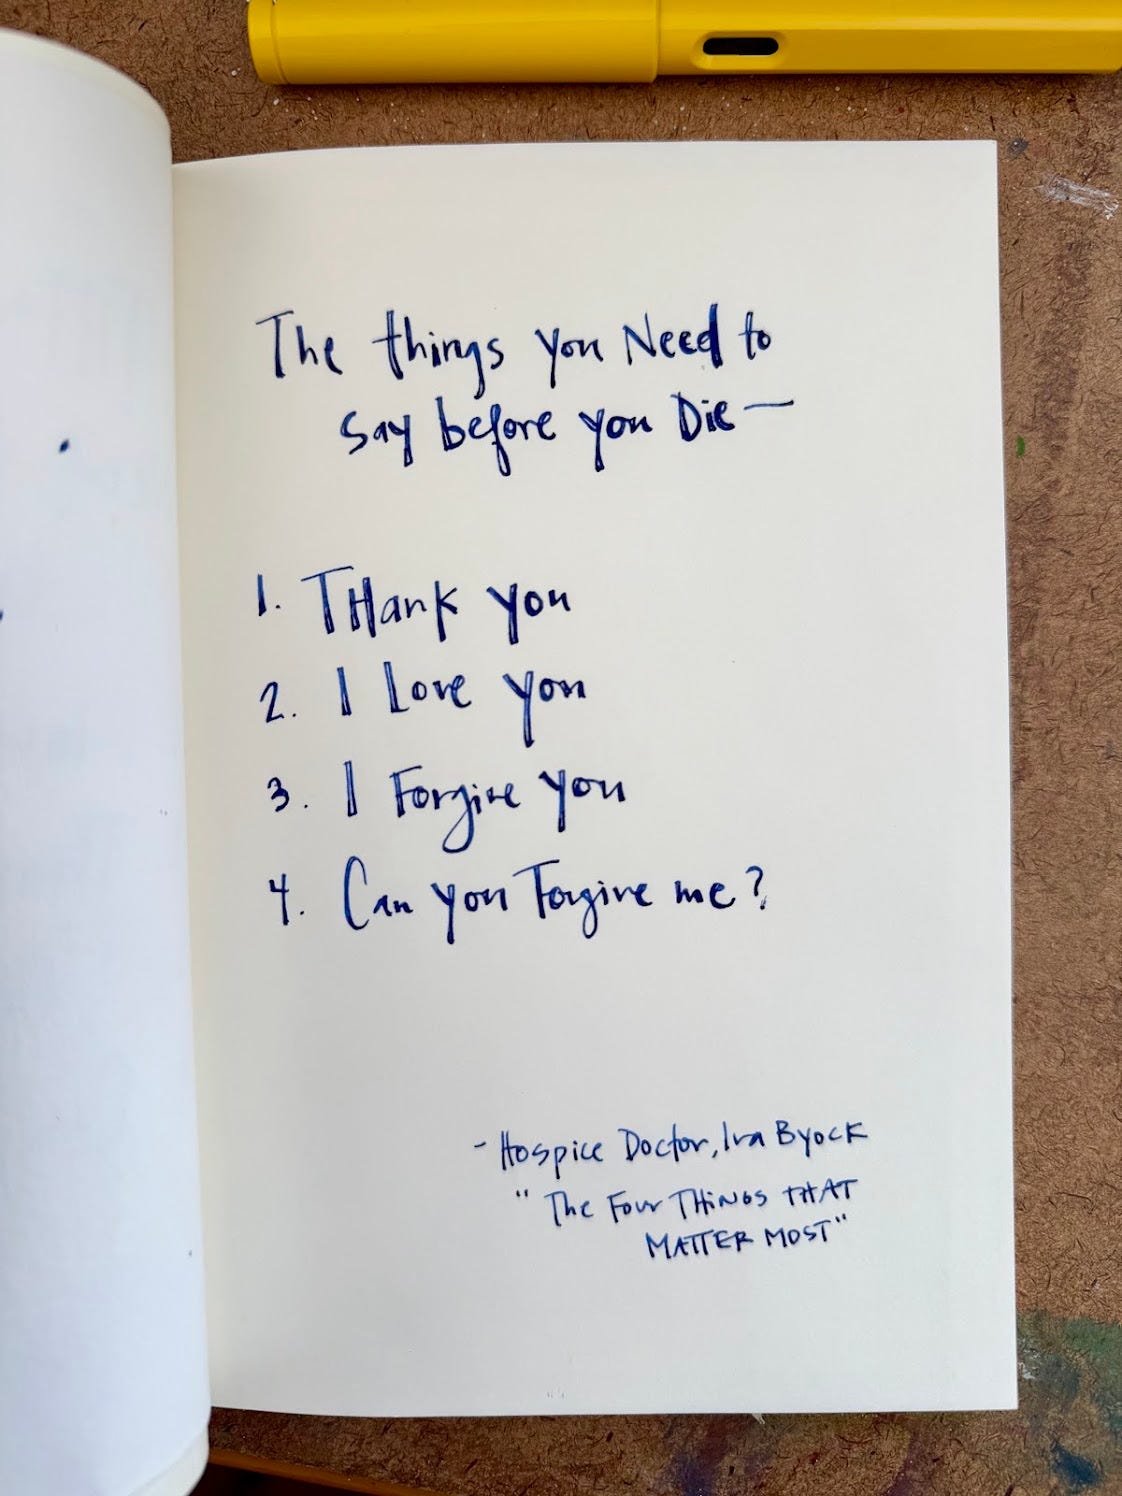 The things you Need to
say before you Die —
1. THank you
2. I Love you
3. I Forgive you
4. Can you Forgive me?
- Hospice Doctor, Ira Byock
"The Four THiNGS THAT
MATTER MOST"